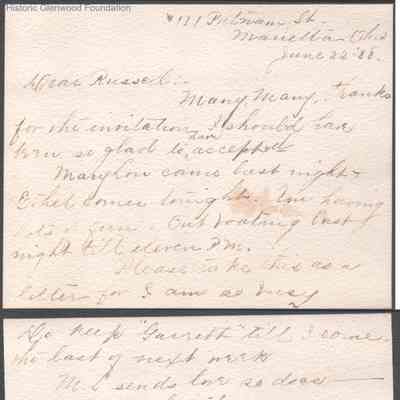 Historic Glenwood Foundation
#171 Putnam St.
Marietta Ohio
June 22 '88.
Dear Russel:-
Many, Many, thanks
for the invitation, I should have
been so glad to have accepted
Marylou came last night-
Ethel comes tonight. Am having
lots of fun. Out boating last
night till eleven P.M.
Please take this as a
letter for I am so busy
Do keep "Garrett" till I come
the last of next week
M. L sends love so does